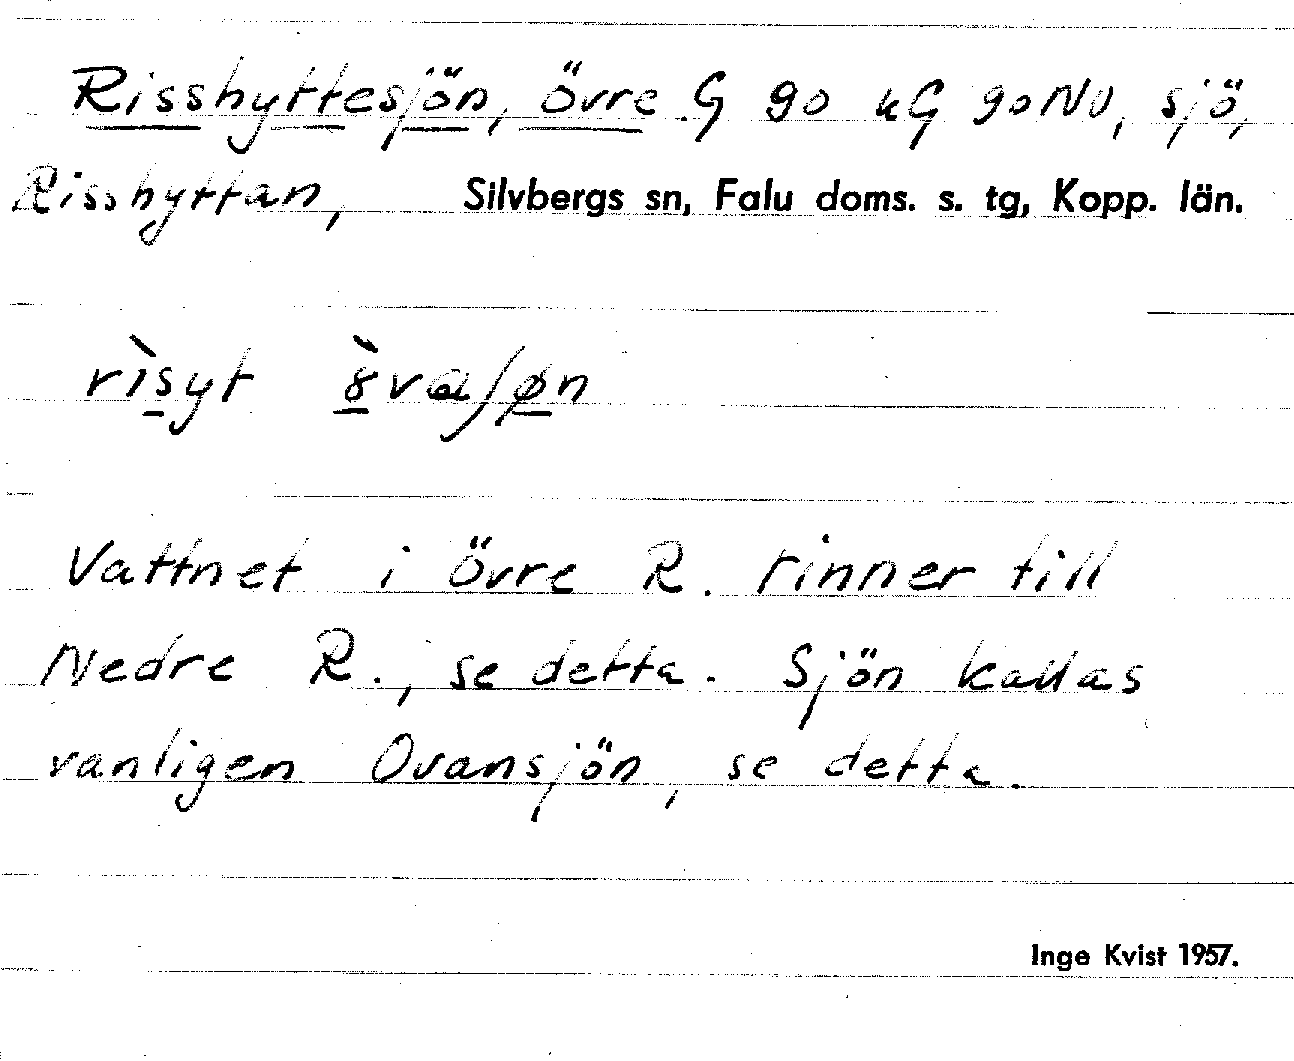 Risshyttesjön, Övre. G 90 uG 90NV, sjö,
Risshyttan, Silvbergs sn, Falu doms. s. tg, Kopp. län.
Vattnet i Övre R. rinner till
Nedre R., se detta. Sjön kallas
vanligen Ovansjön, se detta.
Inge Kvist 1957.